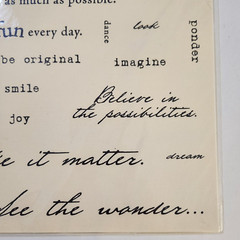 as much as possible.
fun every day.
dance
look
ponder
be original
imagine
smile
Believe in
the possibilities.
joy
it matter.
dream
See the wonder...